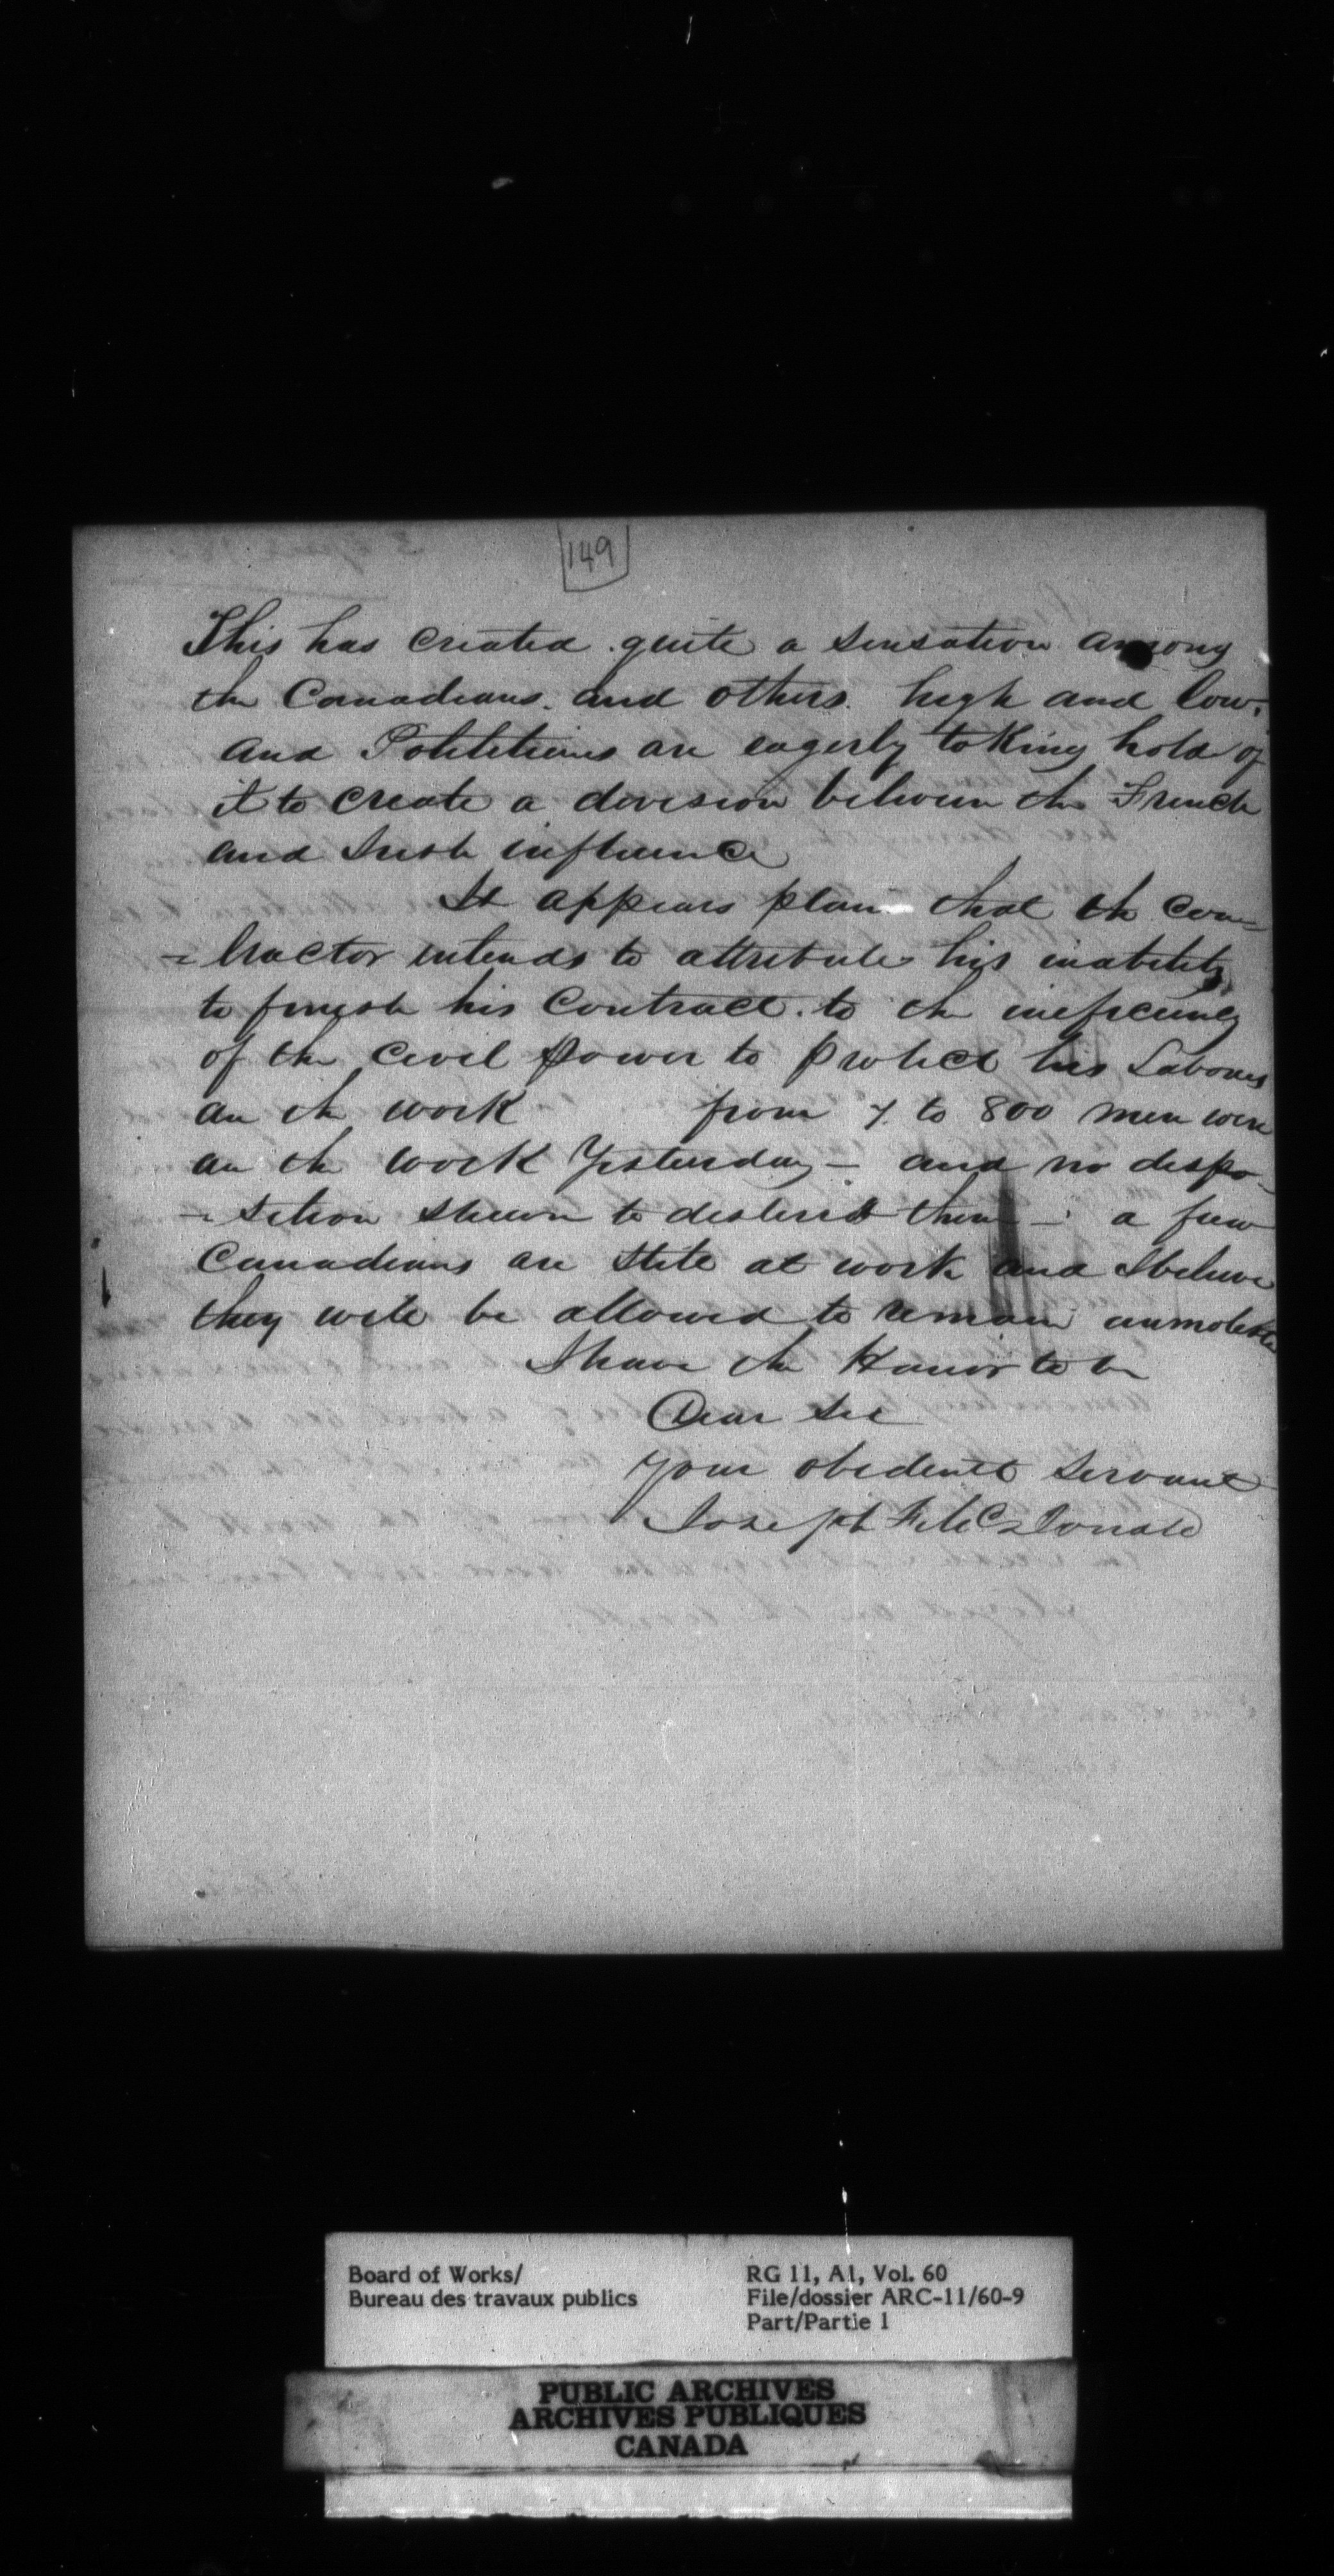 149
This has created quite a sensation among
the Canadians. and others. high and low.
and Polititians are eagerly taking hold of
it to create a division between the French
and Irish influence
It appears plain that the Con=
=tractor intends to attribute his inability
to finish his Contract. to the inefficiency
of the Civil power to protect his Labores
on the work from 7. to 800 men were
on the work Yesterday - and no dispo-
-sition shewn to disturb them - a few
Canadians are still at work and I believe
they will be allowed to remain unmolested
I have the Honor to be
Dear Sir
Your obedient Servant
Joseph McDonald
Board of Works/
Bureau des travaux publics
RG 11, A1, Vol. 60
File/dossier ARC-11/60-9
Part/Partie 1
PUBLIC ARCHIVES
ARCHIVES PUBLIQUES
CANADA